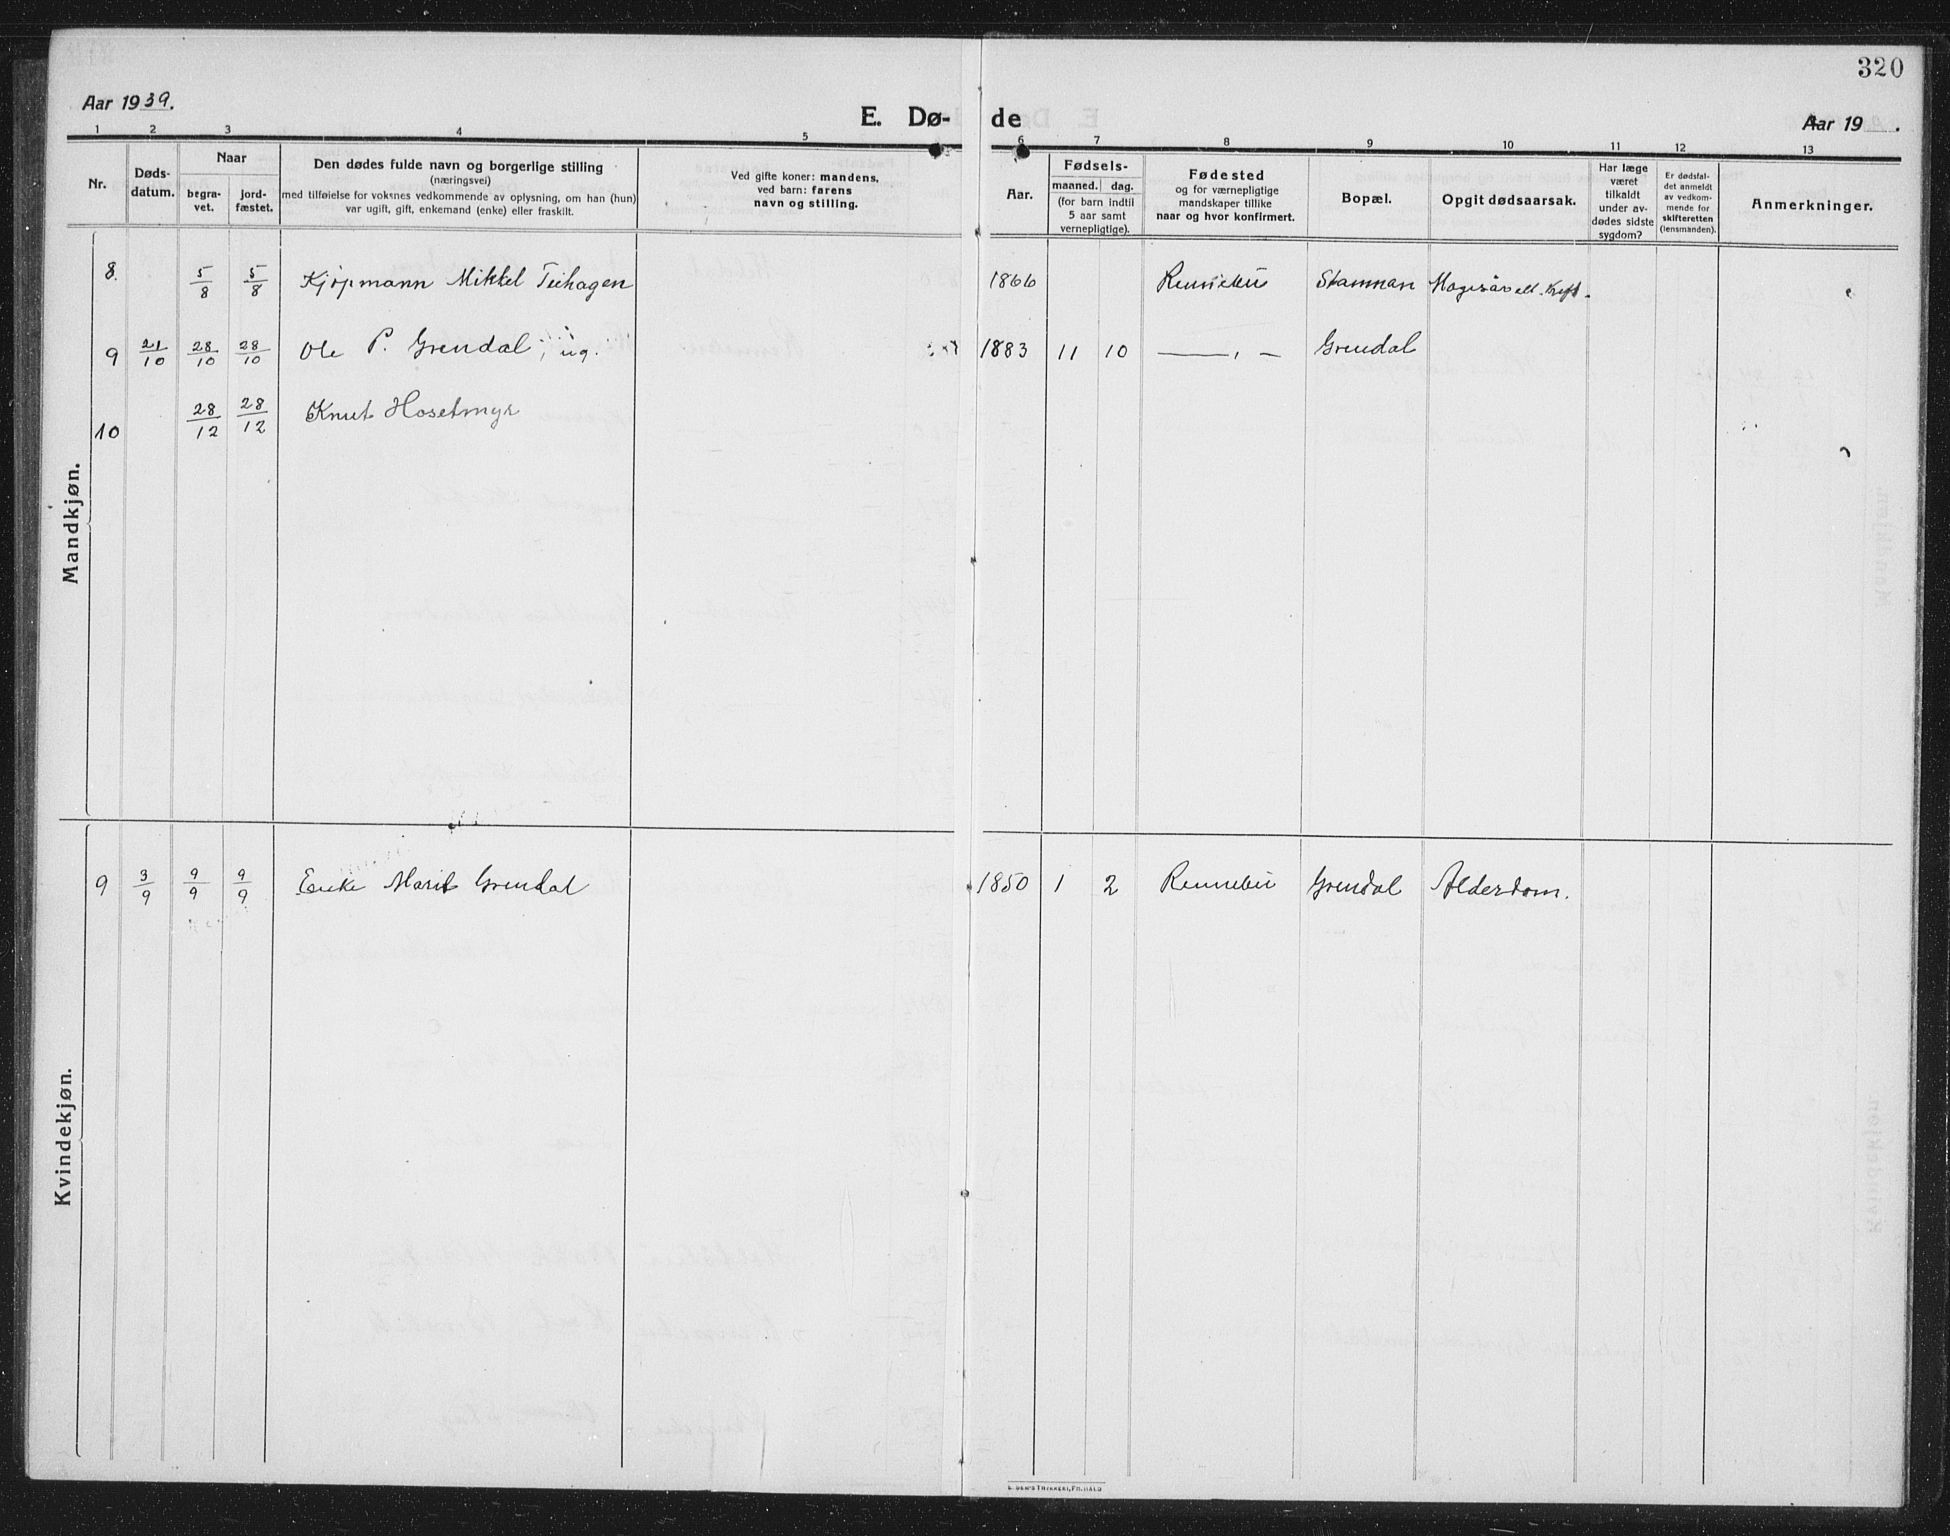 320
Aar 1939.
E. Dø- de
Aar 19 .
1 2 3 4 5 6 7 8 9 10 11 12 13
Nr.
Døds-
datum.
Naar
begra-
vet.
jord-
fæstet.
Den dødes fulde navn og borgerlige stilling
(næringsvei)
med tilføielse for voksnes vedkommende av oplysning, om han (hun)
var ugift, gift, enkemand (enke) eller fraskilt.
Ved gifte koner: mandens,
ved barn: farens
navn og stilling.
Aar.
Fødsels-
maaned. dag.
(for barn indtil
5 aar samt
vernepligtige).
Fødested
og for værnepligtige
mandskaper tillike
naar og hvor konfirmert.
Bopæl.
Opgit dødsaarsak.
Har læge
været
tilkaldt
under av-
dødes sidste
sygdom?
Er dødsfal-
det anmeldt
av vedkom-
mende for
skifteretten
(lensmanden).
Anmerkninger.
Mandkjøn.
8. 5/8 5/8 Kjøpmann Mikkel 1866 Rennebu Stamnan
9 21/10 28/10 28/10 Ole P. Grendal, ug. 1883 11 10 — " — Grendal
10 28/12 28/12 Knut Hosetmyr
Kvindekjøn.
9 3/9 9/9 9/9 Enke Marit Grendal 1850 1 2 Rennebu Grendal Alderdom.